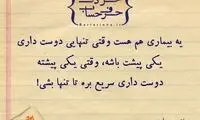 حرف حساب
یه بیماری هم هست وقتی تنهایی دوست داری
یکی پیشت باشه، وقتی یکی پیشته
دوست داری سریع بره تا تنها بشی!